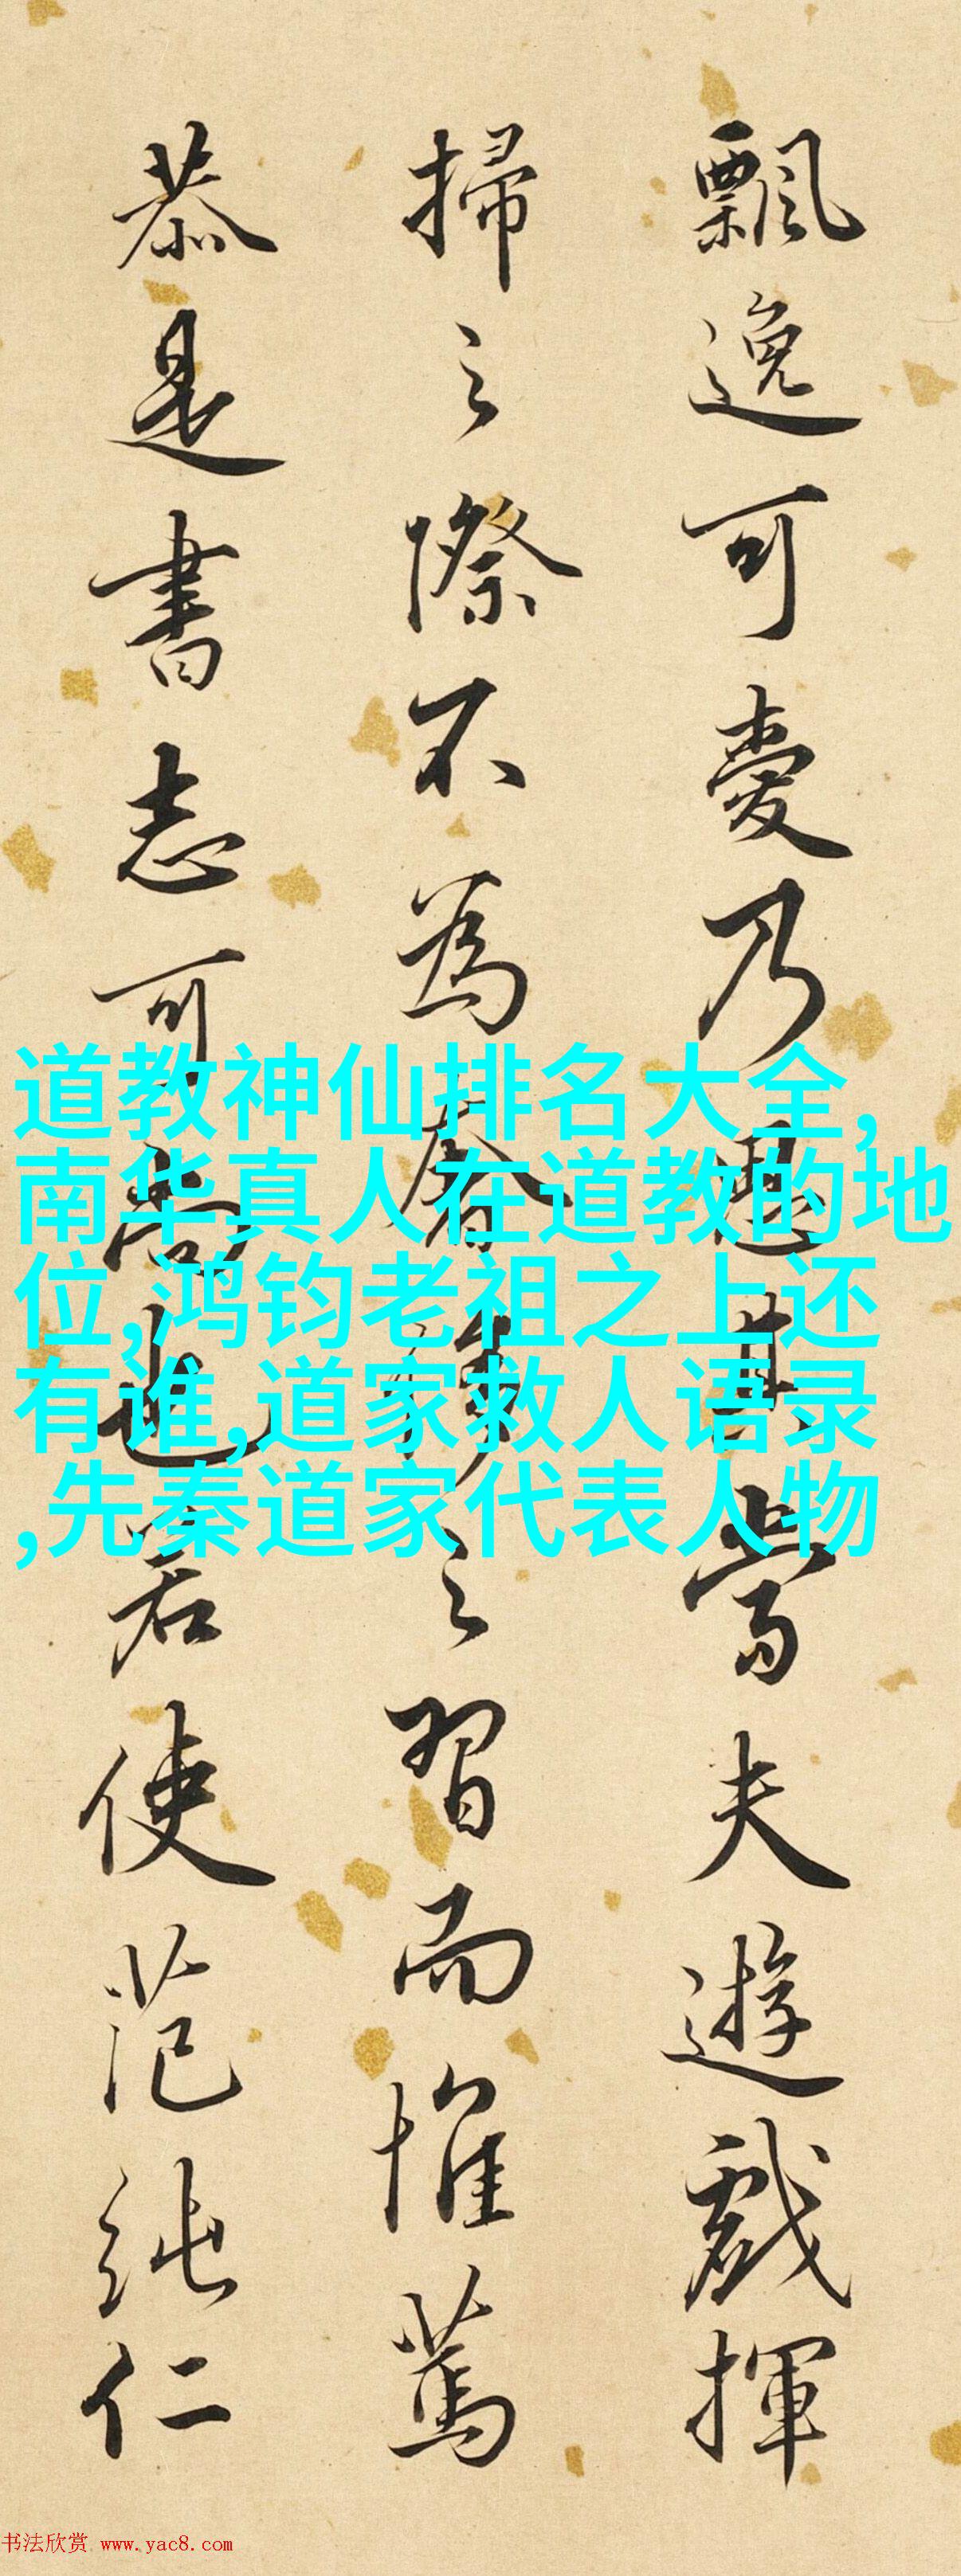 飄逸可愛乃思其當夫遊戲揮
掃之際不為奢侈之習而惟篤
恭是書志可尚也若使范純仁
道教神仙排名大全,
南华真人在道教的地
位,鸿钧老祖之上还
有谁,道家救人语录
,先秦道家代表人物
书法欣赏 www.yac8.com